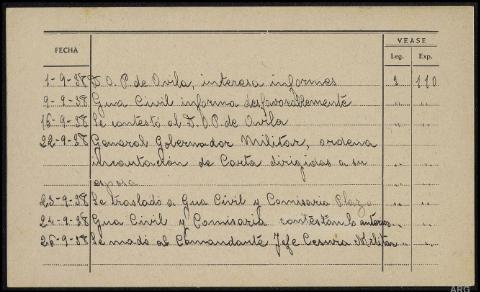 VEASE
FECHA
Leg. Exp.
1-9-38 D. O. P. de Avila, interesa informes 3 110
9-9-38 Gua Civil informa desfavorablemente " "
16-9-38 Se contestó al D. O. P. de Avila " "
22-9-38 General Gobernador Militar, ordena " "
incautación de Carta dirigidas a su
esposa
23-9-38 Se trasladó a Gua Civil y Comisaria " "
24-9-38 Gua Civil y Comisaria contestan lo anterior " "
26-9-38 Se mandó al Comandante Jefe Cesura Militar
ARG